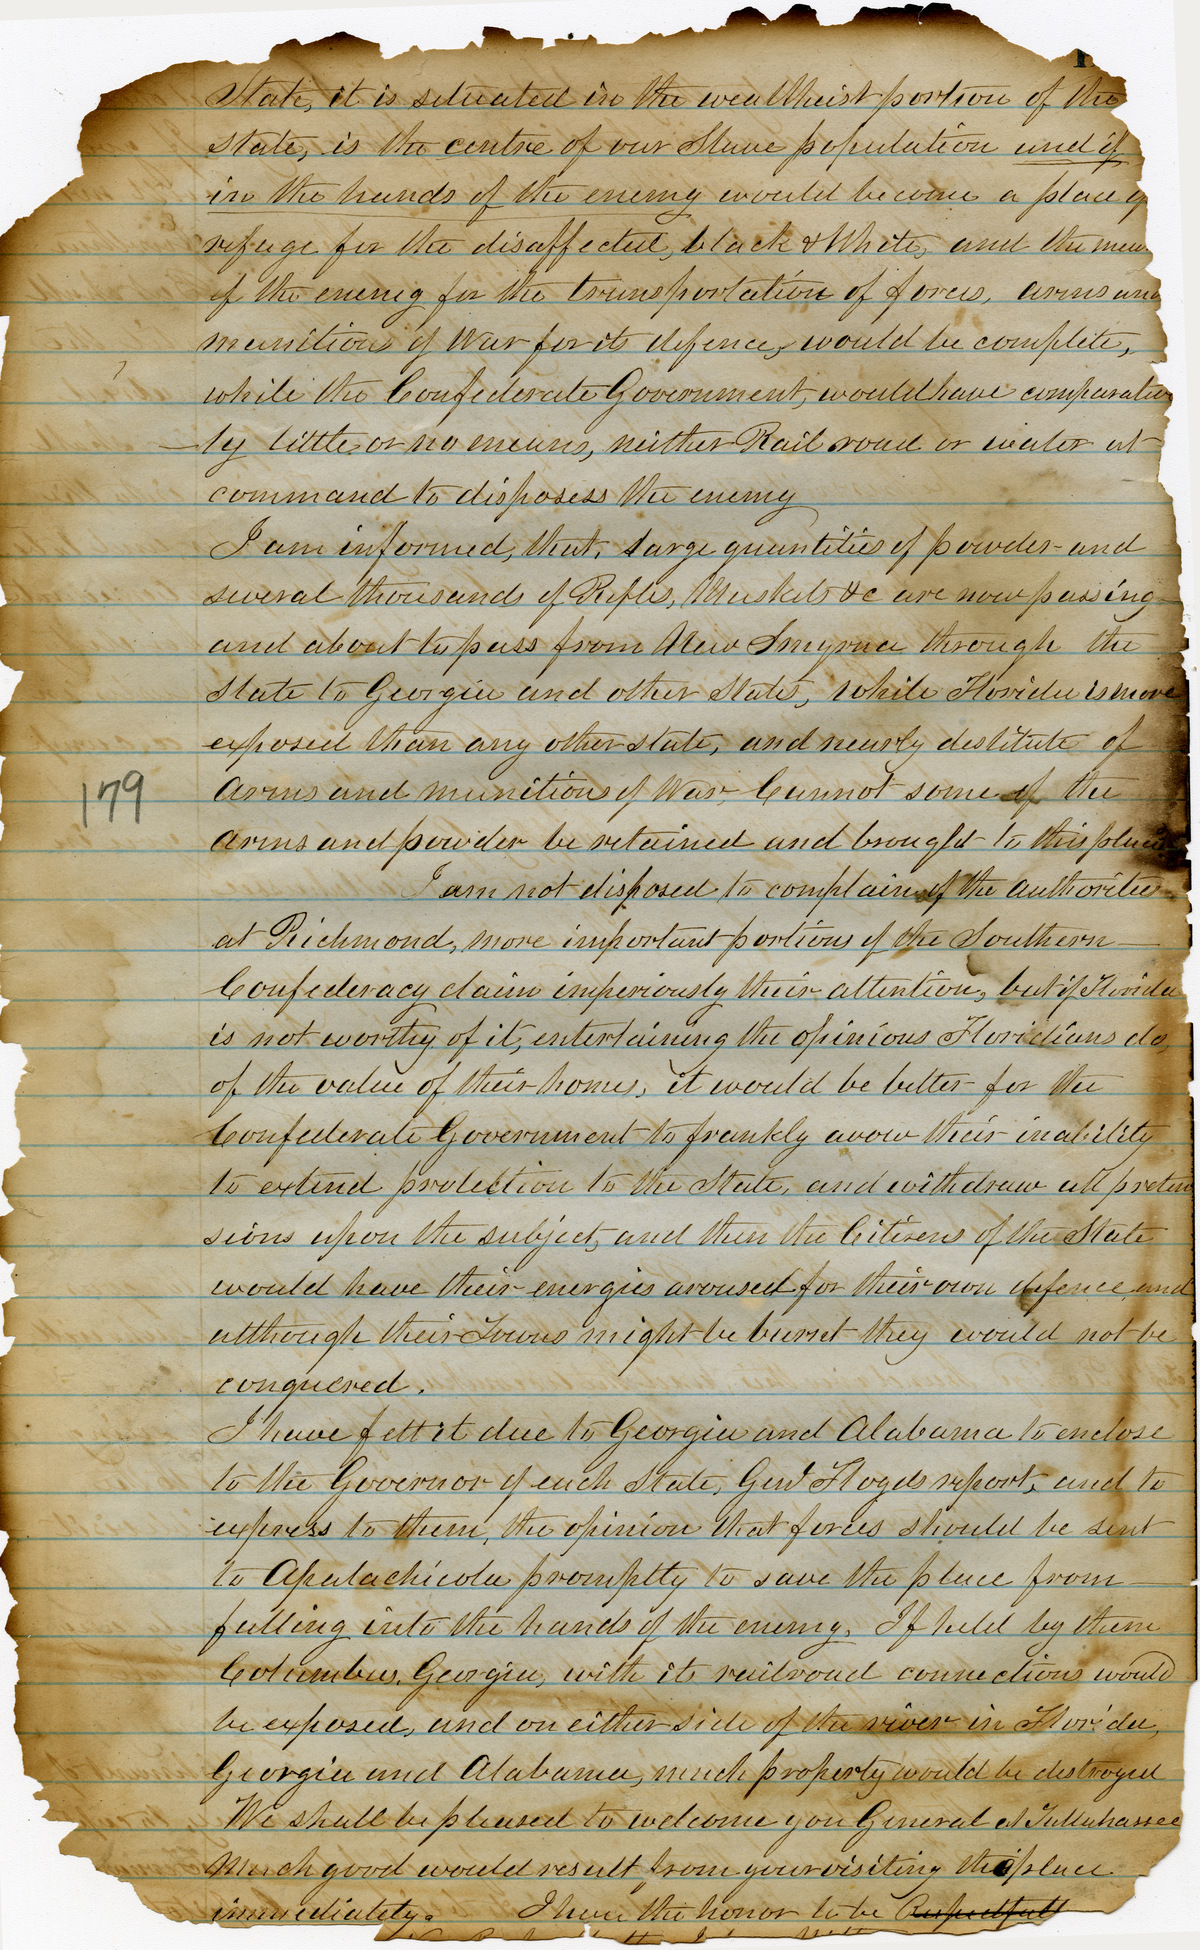 State, it is situated in the wealtheist portion of the
state, is the centre of our Slave population and if
in the hands of the enemy would become a place of
refuge for the disaffected, black & White, and the mean
of the enemy for the transportation of forces, arms and
munitions of War for its defence, would be complete,
while the Confederate Government, would have comparative
ly little or no means, neither Rail road or water at
command to disposess the enemy
I am informed, that, large quantities of powder and
several thousands of Rifles, Muskets &c are now passing
and about to pass from New Smyrna through the
State to Georgia and other States, while Florida is more
exposed than any other state, and nearly destitute of
179
Arms and munitions of War, Cannot some of the
Arms and powder be retained and brought to this place
I am not disposed to complain of the authorities
at Richmond, more important portions of the Southern
Confederacy claim imperiously their attention, but if Florida
is not worthy of it, entertaining the opinions Floridians do,
of the value of their homes, it would be better for the
Confederate Government to frankly avow their inability
to extend protection to the State, and withdraw all preten
sions upon the subject, and then the Citizens of the State
would have their energies aroused for their own defence, and
although their Towns might be burnt they would not be
conquered.
I have felt it due to Georgia and Alabama to enclose
to the Governor of each State, Genl Floyds report, and to
express to them, the opinion that forces should be sent
to Apalachicola promptly to save the place from
falling into the hands of the enemy. If held by them
Columbus, Georgia, with its railroad connections would
be exposed, and on either side of the river in Florida,
Georgia and Alabama, much property would be destroyed
We shall be pleased to welcome you General at Tallahassee
Much good would result from your visiting this place
immediately. I have the honor to be Respectfull